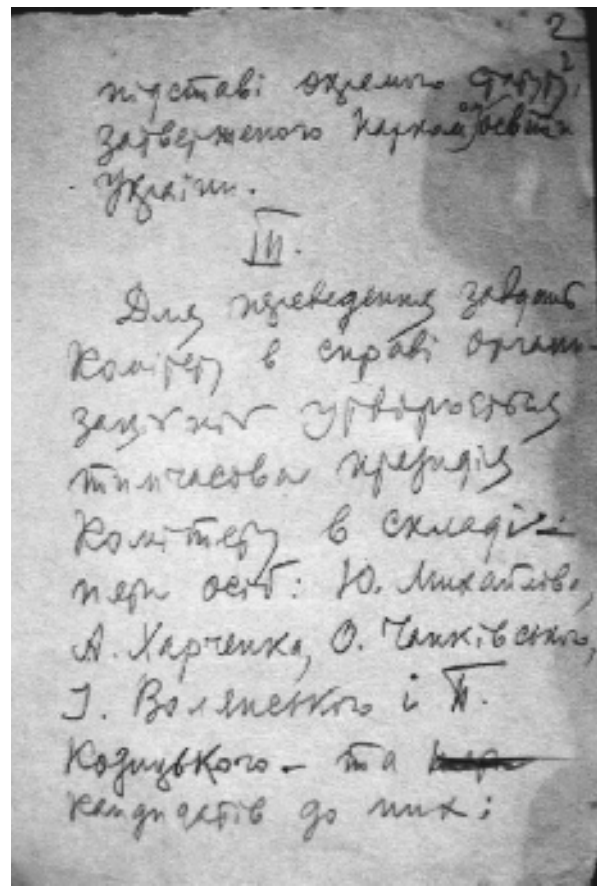 2
підставі окремого статуту,
затверженого Наркомосвіти
України.
III.
Для переведення завдань
Комітету в справі органи-
заційній утворюється
тимчасова президія
Комітету в складі
пяти осіб: Ю. Михайлова,
А. Харченка, О. Чапківського,
І. Волянського і П.
Козицького – та
кандидатів до них: